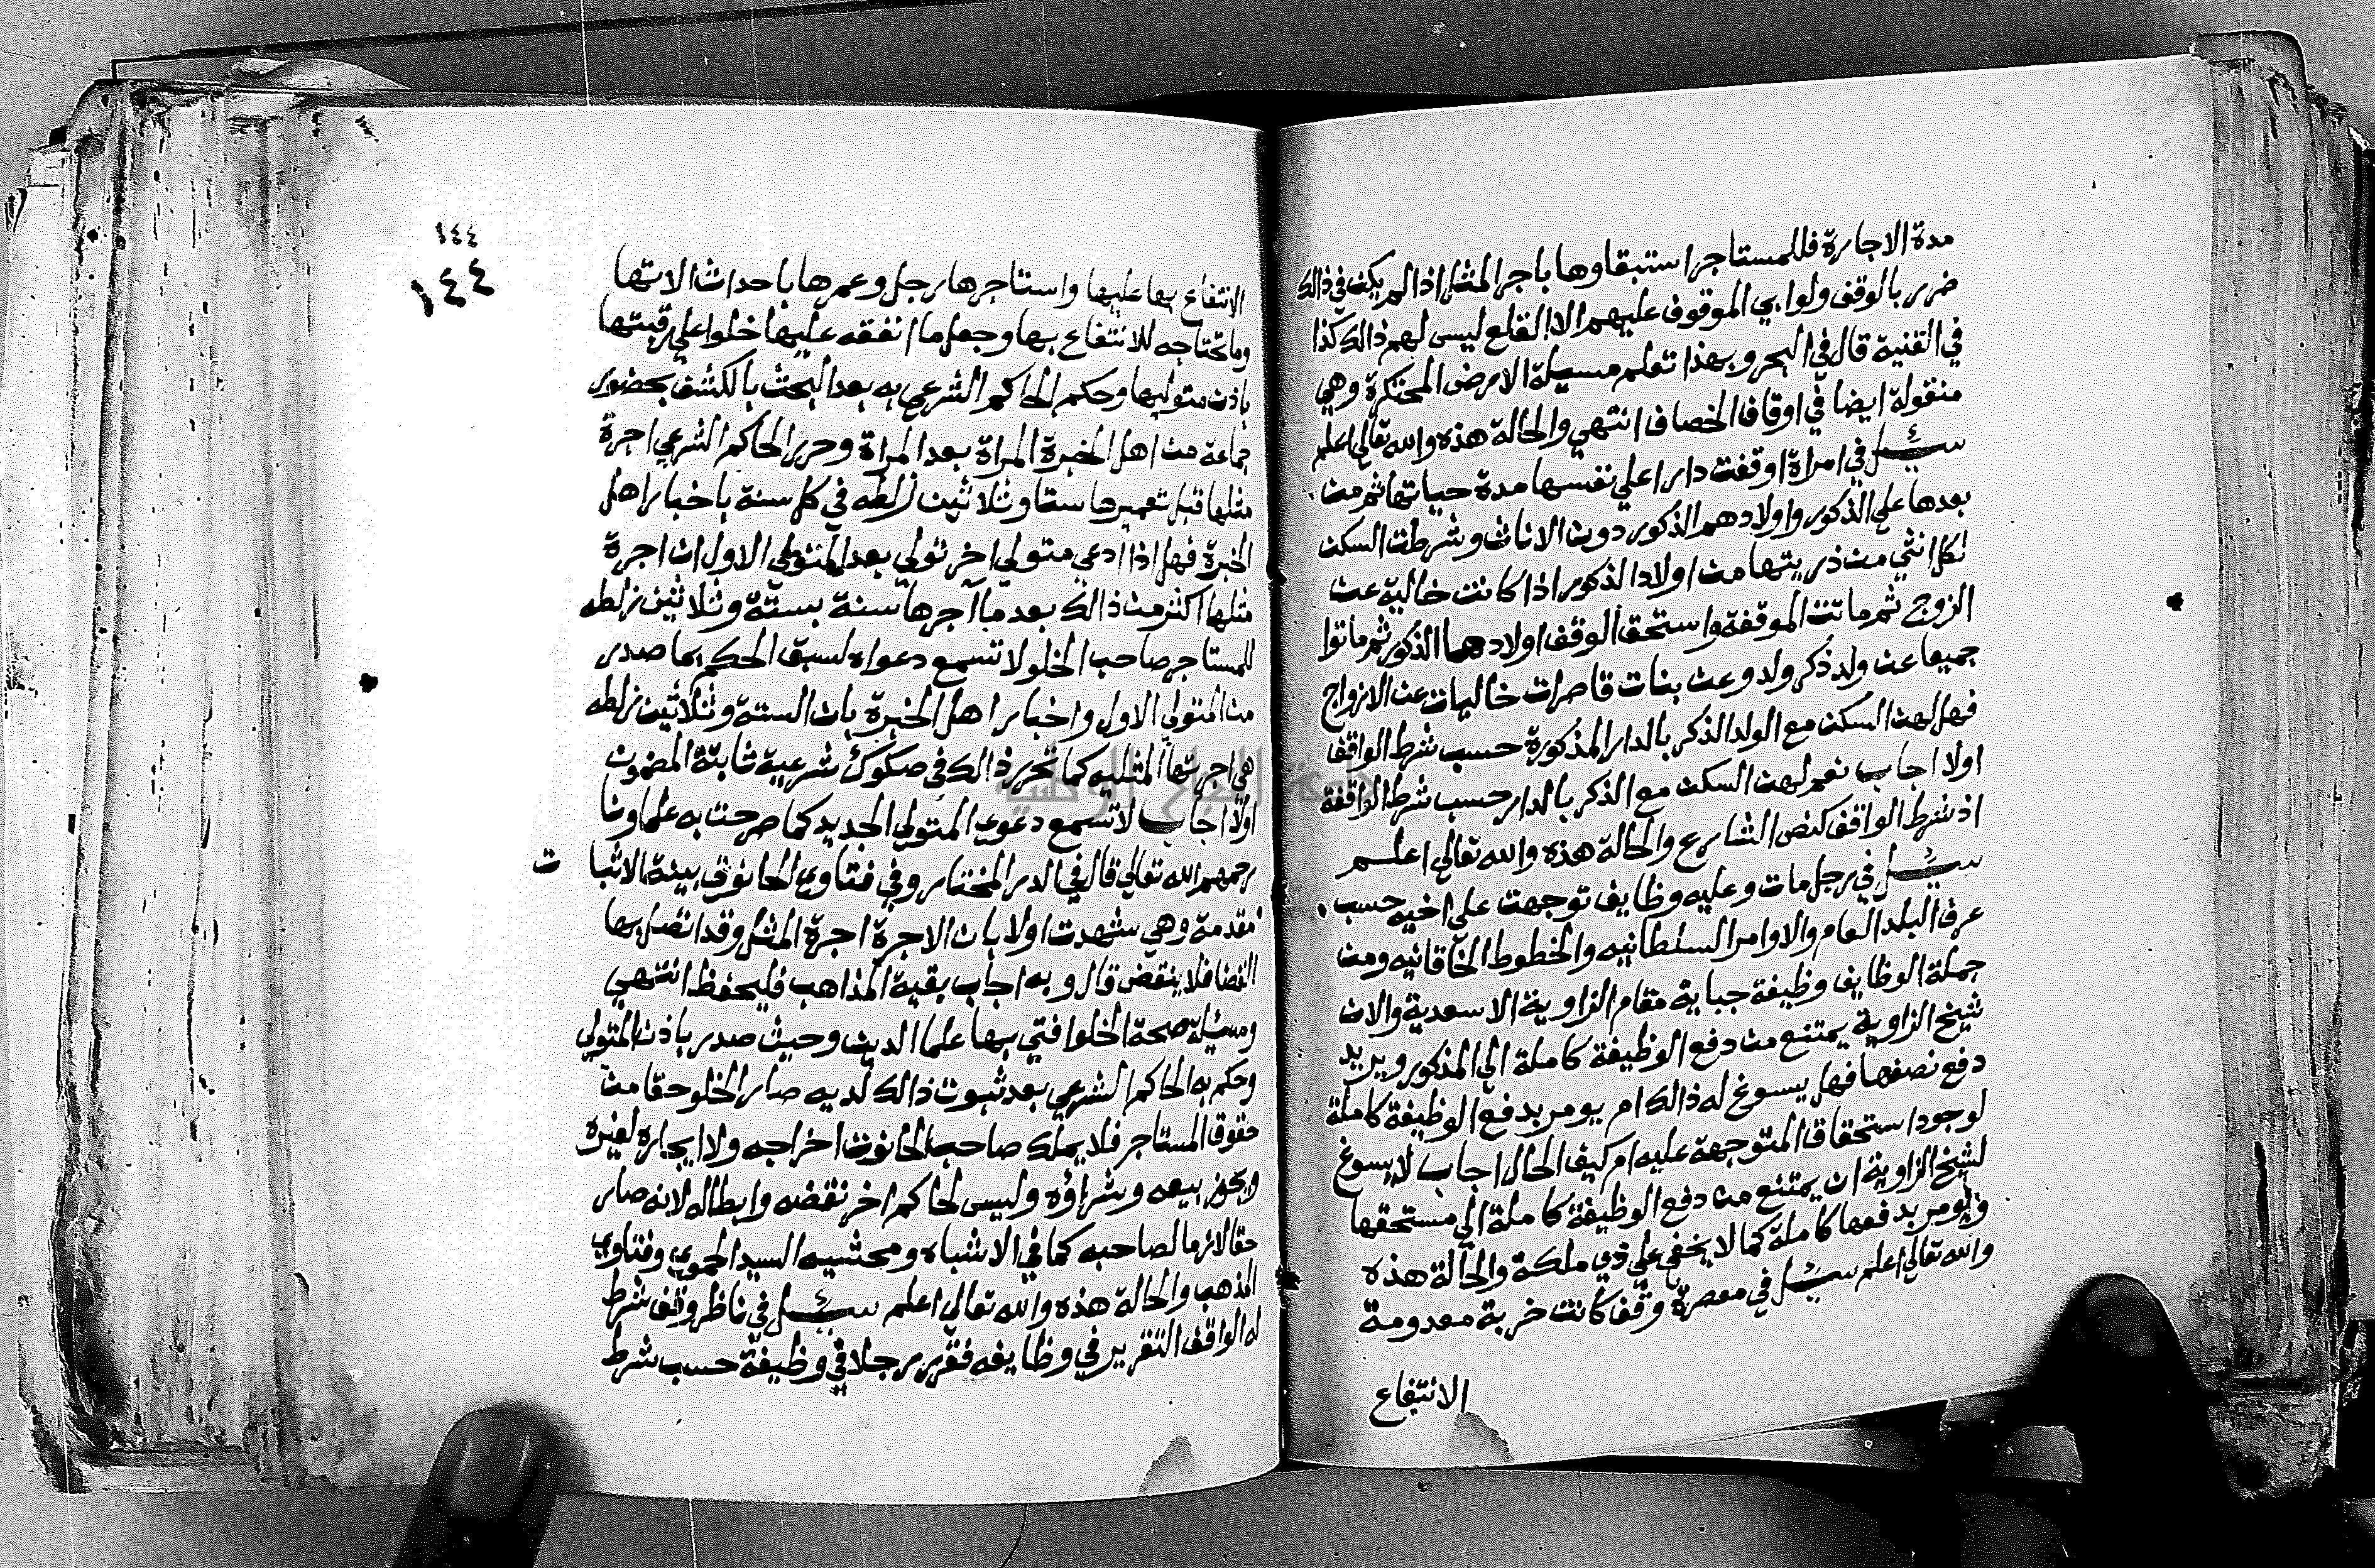 مدة الاجارة فللمستاجر استبقاوها باجر المثل اذا لم يكن في ذالك
ضرر بالوقف ولو ابي الموقوف عليهم الا القلع ليس لهم ذالك كذا
في القنية قال في البحر وبهذا تعلم مسيلة الارض المحتكرة وهي
منقولة ايضا في اوقاف الخصاف انتهي والحالة هذه والله تعالي اعلم
سئل في امراة اوقفت دارا علي نفسها مدة حياتها ثم من
بعدها علي الذكور واولادهم الذكور دون الاناث وشرطت السكن
لكل انثي من ذريتها من اولاد الذكور اذا كانت خالية عن
الزوج ثم ماتت الموقفة واستحق الوقف اولادهما الذكور ثم ماتوا
جميعا عن ولد ذكر ولد وعن بنات قاصرات خاليات عن الازواج
فهل لهن السكن مع الولد الذكر بالدار المذكورة حسب شرط الواقف
اولا اجاب نعم لهن السكن مع الذكر بالدار حسب شرط الواقفة
اذ شرط الواقف كنص الشارع والحالة هذه والله تعالي اعلم
سئل في رجل مات وعليه وظايف توجهت علي اخيه حسب
عرف البلد العام والاوامر السلطانيه والخطوط الخاقانيه ومن
جملة الوظايف وظيفة جباية مقام الزاوية الاسعدية والان
شيخ الزاوية يمتنع من دفع الوظيفة كاملة الي المذكور ويريد
دفع نصفها فهل يسوغ له ذالك ام يومر بدفع الوظيفة كاملة
لوجود استحقاق المتوجهة عليه ام كيف الحال اجاب لا يسوغ
لشيخ الزاوية ان يمتنع من دفع الوظيفة كاملة الي مستحقها
ويومر بدفعها كاملة كما لا يخفي علي ذي ملكة والحالة هذه
والله تعالي اعلم سئل في معصرة وقف كانت خربة معدومة
الانتفاع
١٤٤
١٤٤
الانتفاع بها عليها واستاجرها رجل وعمرها باحداث الاتها
وما تحتاجه للانتفاع بها وجعل ما انفقه عليها خلوا علي رقبتها
باذن متوليها وحكم الحاكم الشرعي به بعد البحث بالكشف بحضور
جماعة من اهل الخبرة المراة بعد المراة وحرر الحاكم الشرعي اجرة
مثلها قبل تعميرها ستا وثلاثين زلطه في كل سنة باخبار اهل
الخبرة فهل اذا ادعي متولي اخر تولي بعد المتولي الاول ان اجرة
مثلها اكثر من ذالك بعد ما آجرها سنة بستة وثلاثين زلطه
للمستاجر صاحب الخلو لا تسمع دعواه لسبق الحكم بما صدر
من المتولي الاول واخبار اهل الخبرة بان الستة وثلاثين زلطه
هي اجرتها المثليه كما تحرر ذالك في صكوك شرعية ثابتة المضمون
اولا اجاب لا تسمع دعوي المتولي الجديد كما صرحت به علماونا
رحمهم الله تعالي قال في الدر المختار وفي فتاوي الحانوتي بينة الاثبا ت
مقدمة وهي شهدت اولا بان الاجرة اجرة المثل وقد اتصل بها
القضا فلا ينقض قال وبه اجاب بقية المذاهب فليحفظ انتهي
ومسيلة صحة الخلو افتي بها علما الدين وحيث صدر باذن المتولي
وحكم به الحاكم الشرعي بعد ثبوت ذالك لديه صار الخلو حقا من
حقوق المستاجر فلا يملك صاحب الحانوت اخراجه ولا ايجاره لغيره
ويجوز بيعه وشراؤه وليس لحاكم اخر نقضه وابطاله لانه صار
حقا لازما لصاحبه كما في الاشباه ومحشيه السيد الحموي وفتاوي
المذهب والحالة هذه والله تعالي اعلم سئل في ناظر وقف شرط
له الواقف التقرير في وظايفه فقرر رجلا في وظيفة حسب شرط